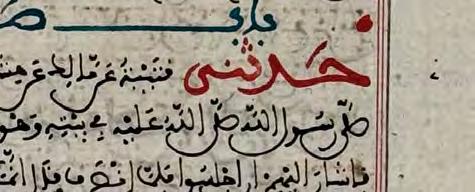 حدثنى قتيبة عن مالك عن هشا
صلى رسول الله صلى الله عليه في بيته وهو
فاشار اليهم ان اجلسوا فلما انصرف قال انما